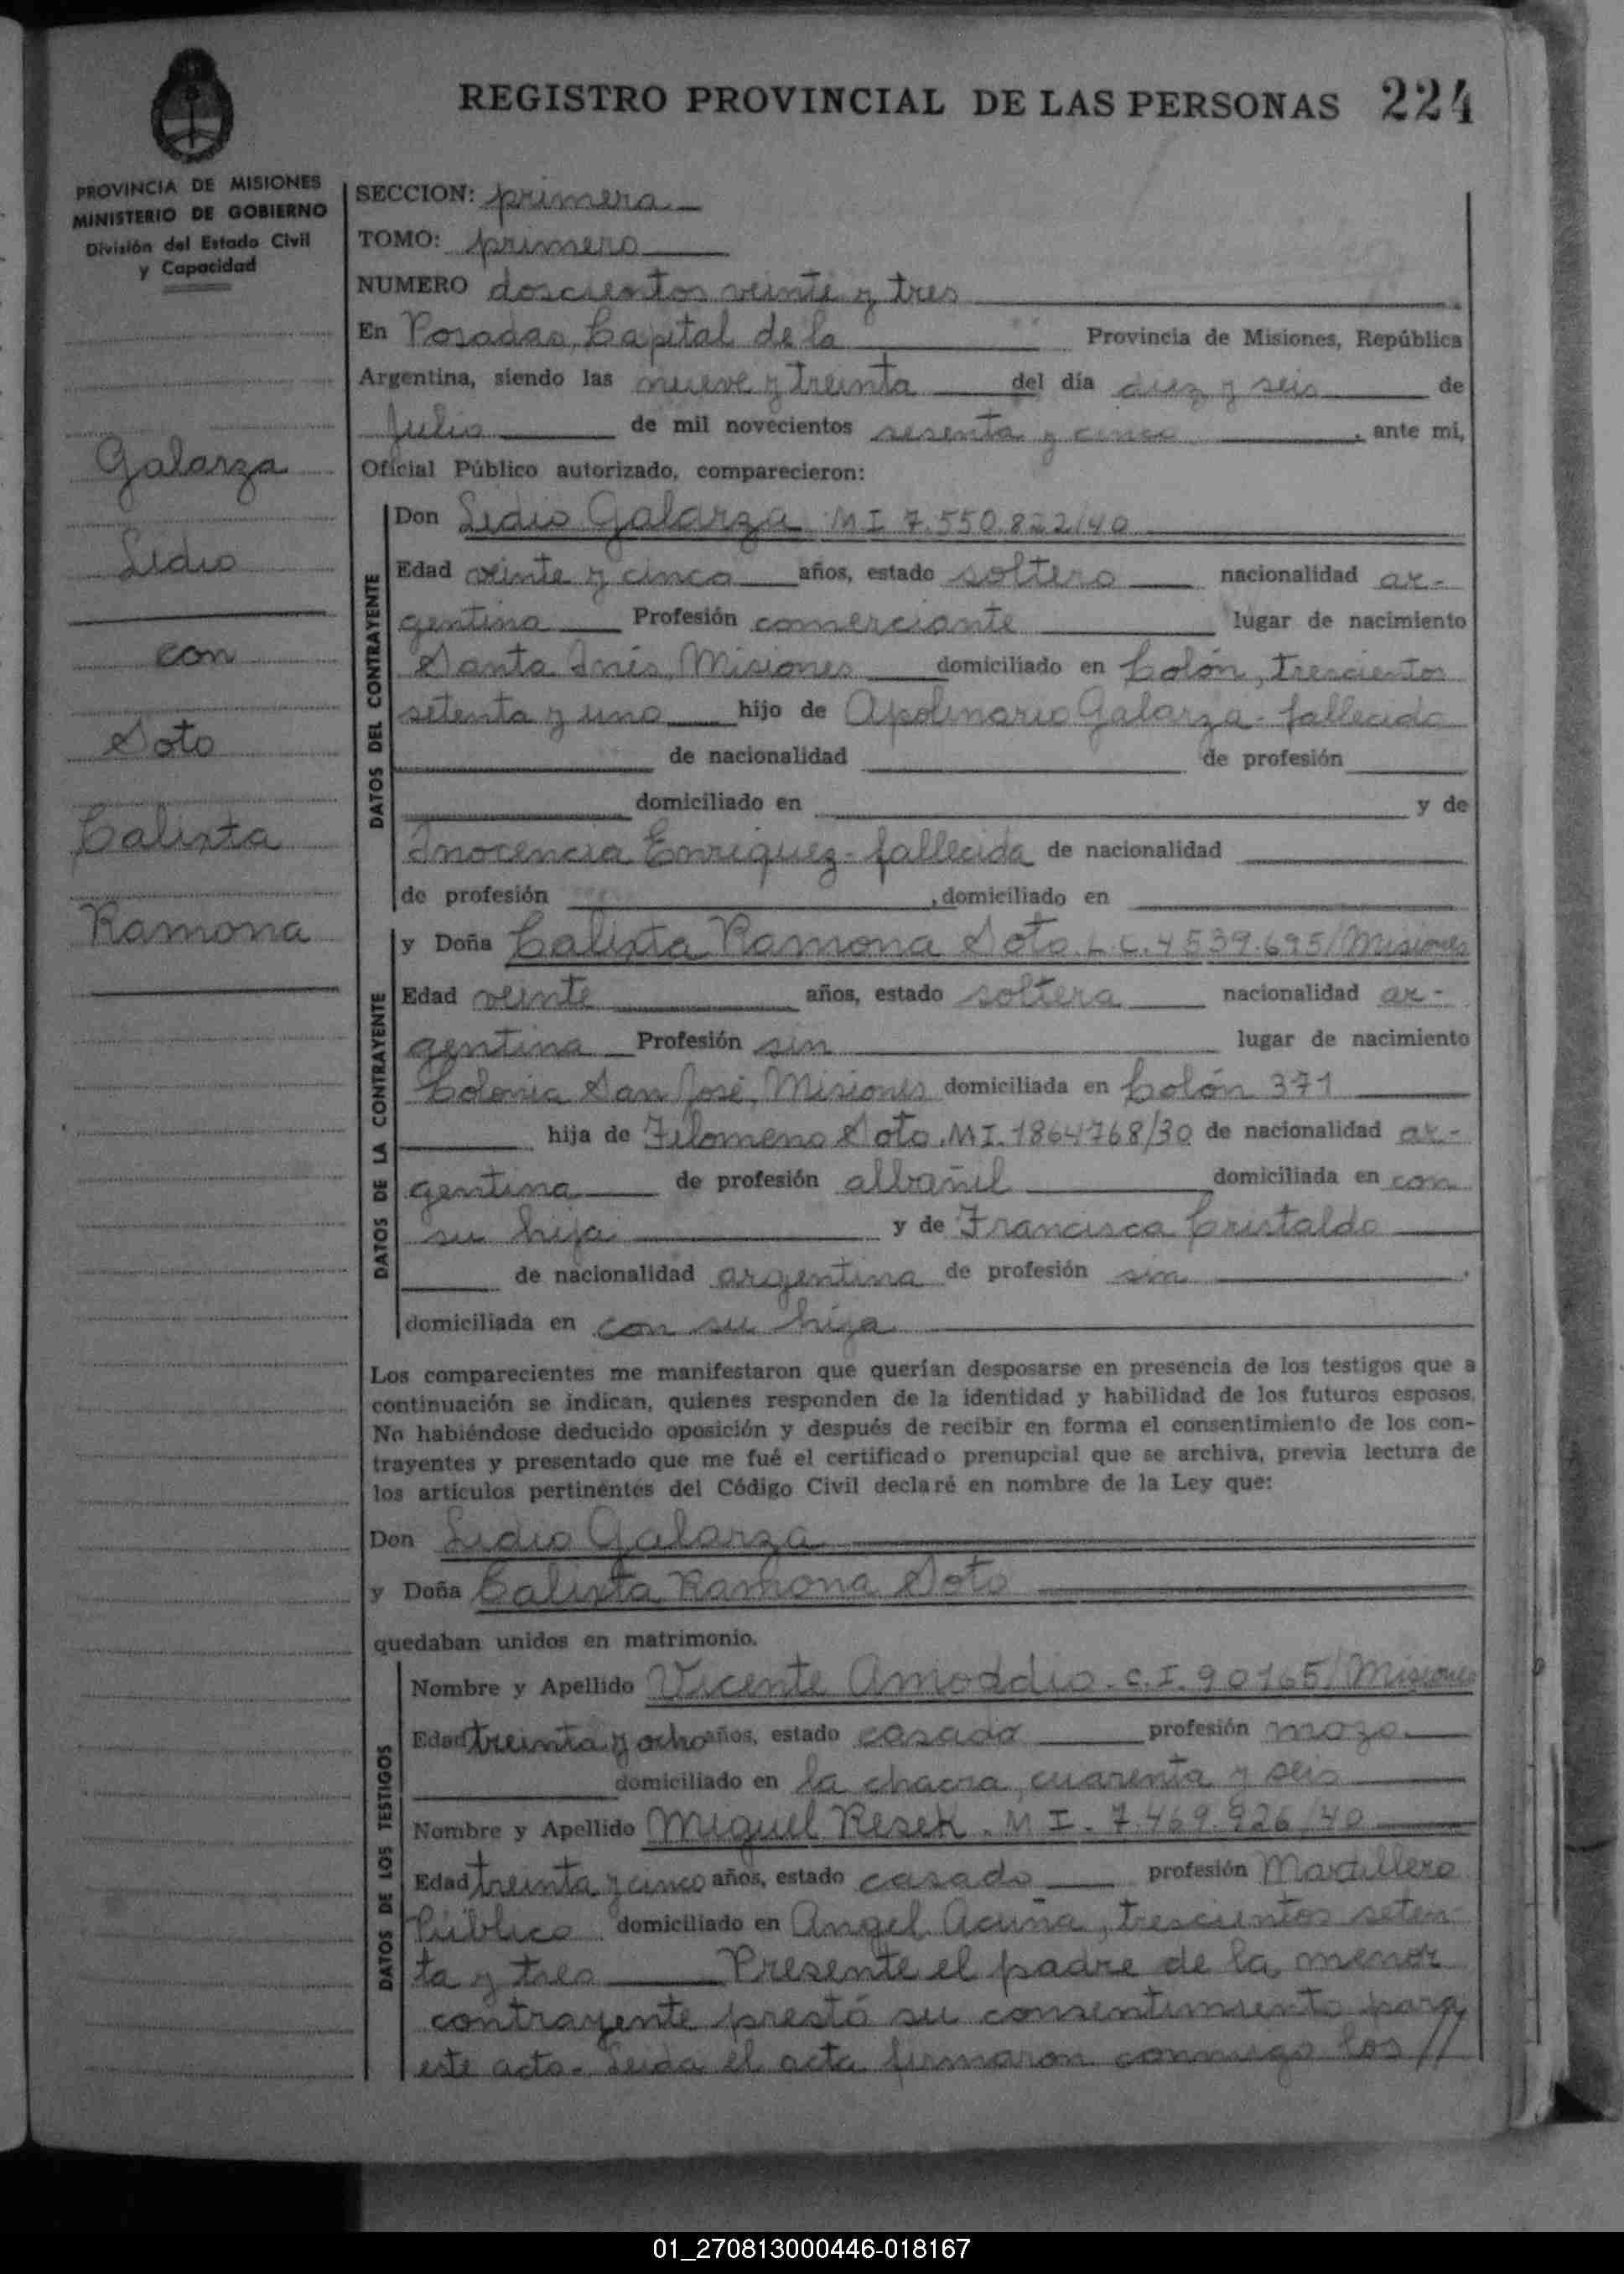 REGISTRO PROVINCIAL DE LAS PERSONAS 224
PROVINCIA DE MISIONES
MINISTERIO DE GOBIERNO
División del Estado Civil
y Capacidad
Galarza
Lidio
con
Soto
Calixta
Ramona
SECCION: primera
TOMO: primero
NUMERO doscientos veinte y tres
En Posadas, Capital de la Provincia de Misiones, República
Argentina, siendo las nueve y treinta del día diez y seis de
Julio de mil novecientos sesenta y cinco, ante mi,
Oficial Público autorizado, comparecieron:
DATOS DEL CONTRAYENTE
Don Lidio Galarza MI 7.550.822/40
Edad veinte y cinco años, estado soltero nacionalidad ar-
gentina Profesión comerciante lugar de nacimiento
Santa Inés, Misiones domiciliado en Colón, trescientos
setenta y uno hijo de Apolinario Galarza - fallecido
de nacionalidad de profesión
domiciliado en y de
Inocencia Enriquez - fallecida de nacionalidad
de profesión , domiciliado en
DATOS DE LA CONTRAYENTE
y Doña Calixta Ramona Soto. L.C. 4539.695/Misiones
Edad veinte años, estado soltera nacionalidad ar-
gentina Profesión sin lugar de nacimiento
Colonia San José, Misiones domiciliada en Colón 371
hija de Filomeno Soto. MI. 1864768/30 de nacionalidad ar-
gentina de profesión albañil domiciliada en con
su hija y de Francisca Cristaldo
de nacionalidad argentina de profesión sin
domiciliada en con su hija
Los comparecientes me manifestaron que querían desposarse en presencia de los testigos que a
continuación se indican, quienes responden de la identidad y habilidad de los futuros esposos.
No habiéndose deducido oposición y después de recibir en forma el consentimiento de los con-
trayentes y presentado que me fué el certificado prenupcial que se archiva, previa lectura de
los articulos pertinentes del Código Civil declaré en nombre de la Ley que:
Don Lidio Galarza
y Doña Calixta Ramona Soto
quedaban unidos en matrimonio.
DATOS DE LOS TESTIGOS
Nombre y Apellido Vicente Amoddio. C.I. 90165/Misiones
Edad treinta y ocho años, estado casado profesión mozo
domiciliado en la chacra, cuarenta y seis
Nombre y Apellido Miguel Resek. MI. 7.469.926/40
Edad treinta y cinco años, estado casado profesión Martillero
Público domiciliado en Angel Acuña, trescientos seten-
ta y tres Presente el padre de la menor
contrayente prestó su consentimiento para
este acto. Leida el acta firmaron conmigo los //
01_270813000446-018167